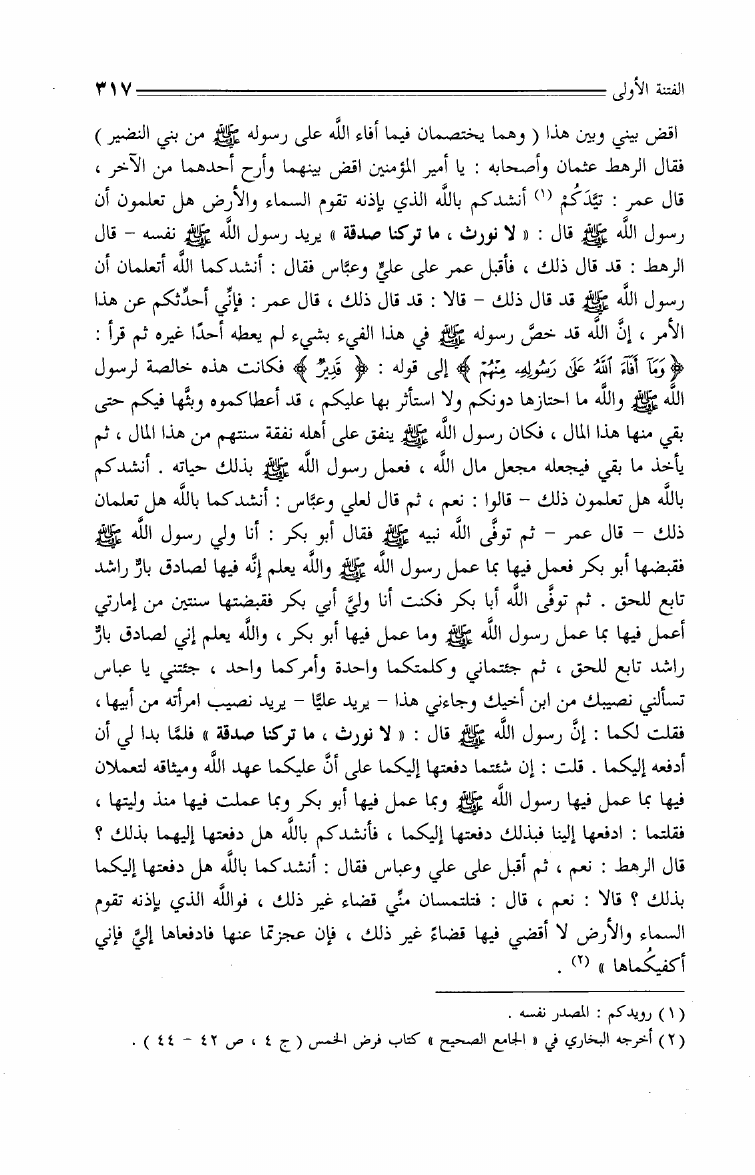 الفتنة الأولى ٣١٧
اقض بيني وبين هذا ( وهما يختصمان فيما أفاء اللَّه على رسوله ﷺ من بني النضير )
فقال الرهط عثمان وأصحابه : يا أمير المؤمنين اقض بينهما وأرح أحدهما من الآخر ،
قال عمر : تَيَّدَكُمْ (١) أنشدكم باللَّه الذي بإذنه تقوم السماء والأرض هل تعلمون أن
رسول اللَّه ﷺ قال : « لا نورث ، ما تركنا صدقة » يريد رسول اللَّه ﷺ نفسه – قال
الرهط : قد قال ذلك ، فأقبل عمر على عليٍّ وعبَّاس فقال : أنشدكما اللَّه أتعلمان أن
رسول اللَّه ﷺ قد قال ذلك – قالا : قد قال ذلك ، قال عمر : فإنِّي أحدِّثكم عن هذا
الأمر ، إنَّ اللَّه قد خصَّ رسوله ﷺ في هذا الفيء بشيء لم يعطه أحدًا غيره ثم قرأ :
﴿ وَمَآ أَفَآءَ ٱللَّهُ عَلَىٰ رَسُولِهِۦ مِنْهُمْ ﴾ إلى قوله : ﴿ قَدِيرٌ ﴾ فكانت هذه خالصة لرسول
اللَّه ﷺ واللَّه ما احتازها دونكم ولا استأثر بها عليكم ، قد أعطاكموه وبثَّها فيكم حتى
بقي منها هذا المال ، فكان رسول اللَّه ﷺ ينفق على أهله نفقة سنتهم من هذا المال ، ثم
يأخذ ما بقي فيجعله مجعل مال اللَّه ، فعمل رسول اللَّه ﷺ بذلك حياته . أنشدكم
باللَّه هل تعلمون ذلك – قالوا : نعم ، ثم قال لعلي وعبَّاس : أنشدكما باللَّه هل تعلمان
ذلك – قال عمر – ثم توفَّى اللَّه نبيه ﷺ فقال أبو بكر : أنا ولي رسول اللَّه ﷺ
فقبضها أبو بكر فعمل فيها بما عمل رسول اللَّه ﷺ واللَّه يعلم إنَّه فيها لصادق بارٌّ راشد
تابع للحق . ثم توفَّى اللَّه أبا بكر فكنت أنا وليَّ أبي بكر فقبضتها سنتين من إمارتي
أعمل فيها بما عمل رسول اللَّه ﷺ وما عمل فيها أبو بكر ، واللَّه يعلم إني لصادق بارٌّ
راشد تابع للحق ، ثم جئتماني وكلمتكما واحدة وأمركما واحد ، جئتني يا عباس
تسألني نصيبك من ابن أخيك وجاءني هذا – يريد عليًّا – يريد نصيب امرأته من أبيها ،
فقلت لكما : إنَّ رسول اللَّه ﷺ قال : « لا نورث ، ما تركنا صدقة » فلمَّا بدا لي أن
أدفعه إليكما . قلت : إن شئتما دفعتها إليكما على أنَّ عليكما عهد اللَّه وميثاقه لتعملان
فيها بما عمل فيها رسول اللَّه ﷺ وبما عمل فيها أبو بكر وبما عملت فيها منذ وليتها ،
فقلتما : ادفعها إلينا فبذلك دفعتها إليكما ، فأنشدكم باللَّه هل دفعتها إليهما بذلك ؟
قال الرهط : نعم ، ثم أقبل على علي وعباس فقال : أنشدكما باللَّه هل دفعتها إليكما
بذلك ؟ قالا : نعم ، قال : فتلتمسان منِّي قضاء غير ذلك ، فواللَّه الذي بإذنه تقوم
السماء والأرض لا أقضي فيها قضاءً غير ذلك ، فإن عجزتما عنها فادفعاها إليَّ فإني
أكفيكُماها » (٢) .
(١) رويدكم : المصدر نفسه .
(٢) أخرجه البخاري في « الجامع الصحيح » كتاب فرض الخمس ( ج ٤ ، ص ٤٢ – ٤٤ ) .